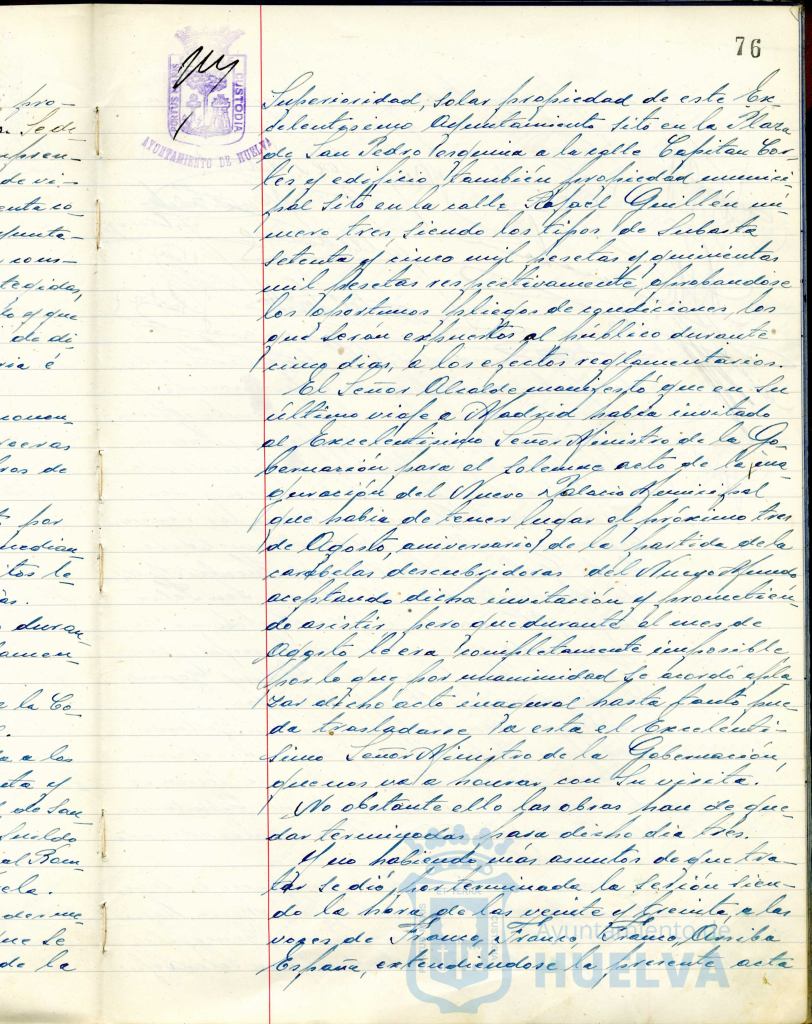 76
PORTUS MARIS
CUSTODIA
AYUNTAMIENTO DE HUELVA
Superioridad, solar propiedad de este Ex-
celentísimo Ayuntamiento sito en la Plaza
de San Pedro esquina a la calle Capitan Cor-
tés y edificio también propiedad munici-
pal sito en la calle Rafael Guillén nú-
mero tres, siendo los tipos de subasta
setenta y cinco mil pesetas y quinientas
mil pesetas respectivamente, aprobandose
los oportunos pliegos de condiciones, los
que serán expuestos al público durante
cinco dias, a los efectos reglamentarios.
El Señor Alcalde manifestó que en su
último viaje a Madrid habia invitado
al Excelentísimo Señor Ministro de la Go-
bernación para el solemne acto de la inau-
guración del Nuevo Palacio Municipal
que habia de tener lugar el próximo tres
de Agosto, aniversario de la partida de la
carabelas descubridoras del Nuevo Mundo
aceptando dicha invitación y prometien-
do asistir, pero que durante el mes de
Agosto le era completamente imposible
por lo que por unanimidad se acordó apla-
zar dicho acto inagural hasta tanto pue-
da trasladarse a esta el Excelentí-
simo Señor Ministro de la Gobernación,
que nos va a honrar con su visita.
No obstante ello las obras han de que-
dar terminadas para dicho dia tres.
Y no habiendo más asuntos de que tra-
tar se dió por terminada la sesión sien-
do la hora de las veinte y treinta, a las
voces de Franco, Franco, Franco, Arriba
España, extendiéndose la presente acta
Ayuntamiento de
HUELVA